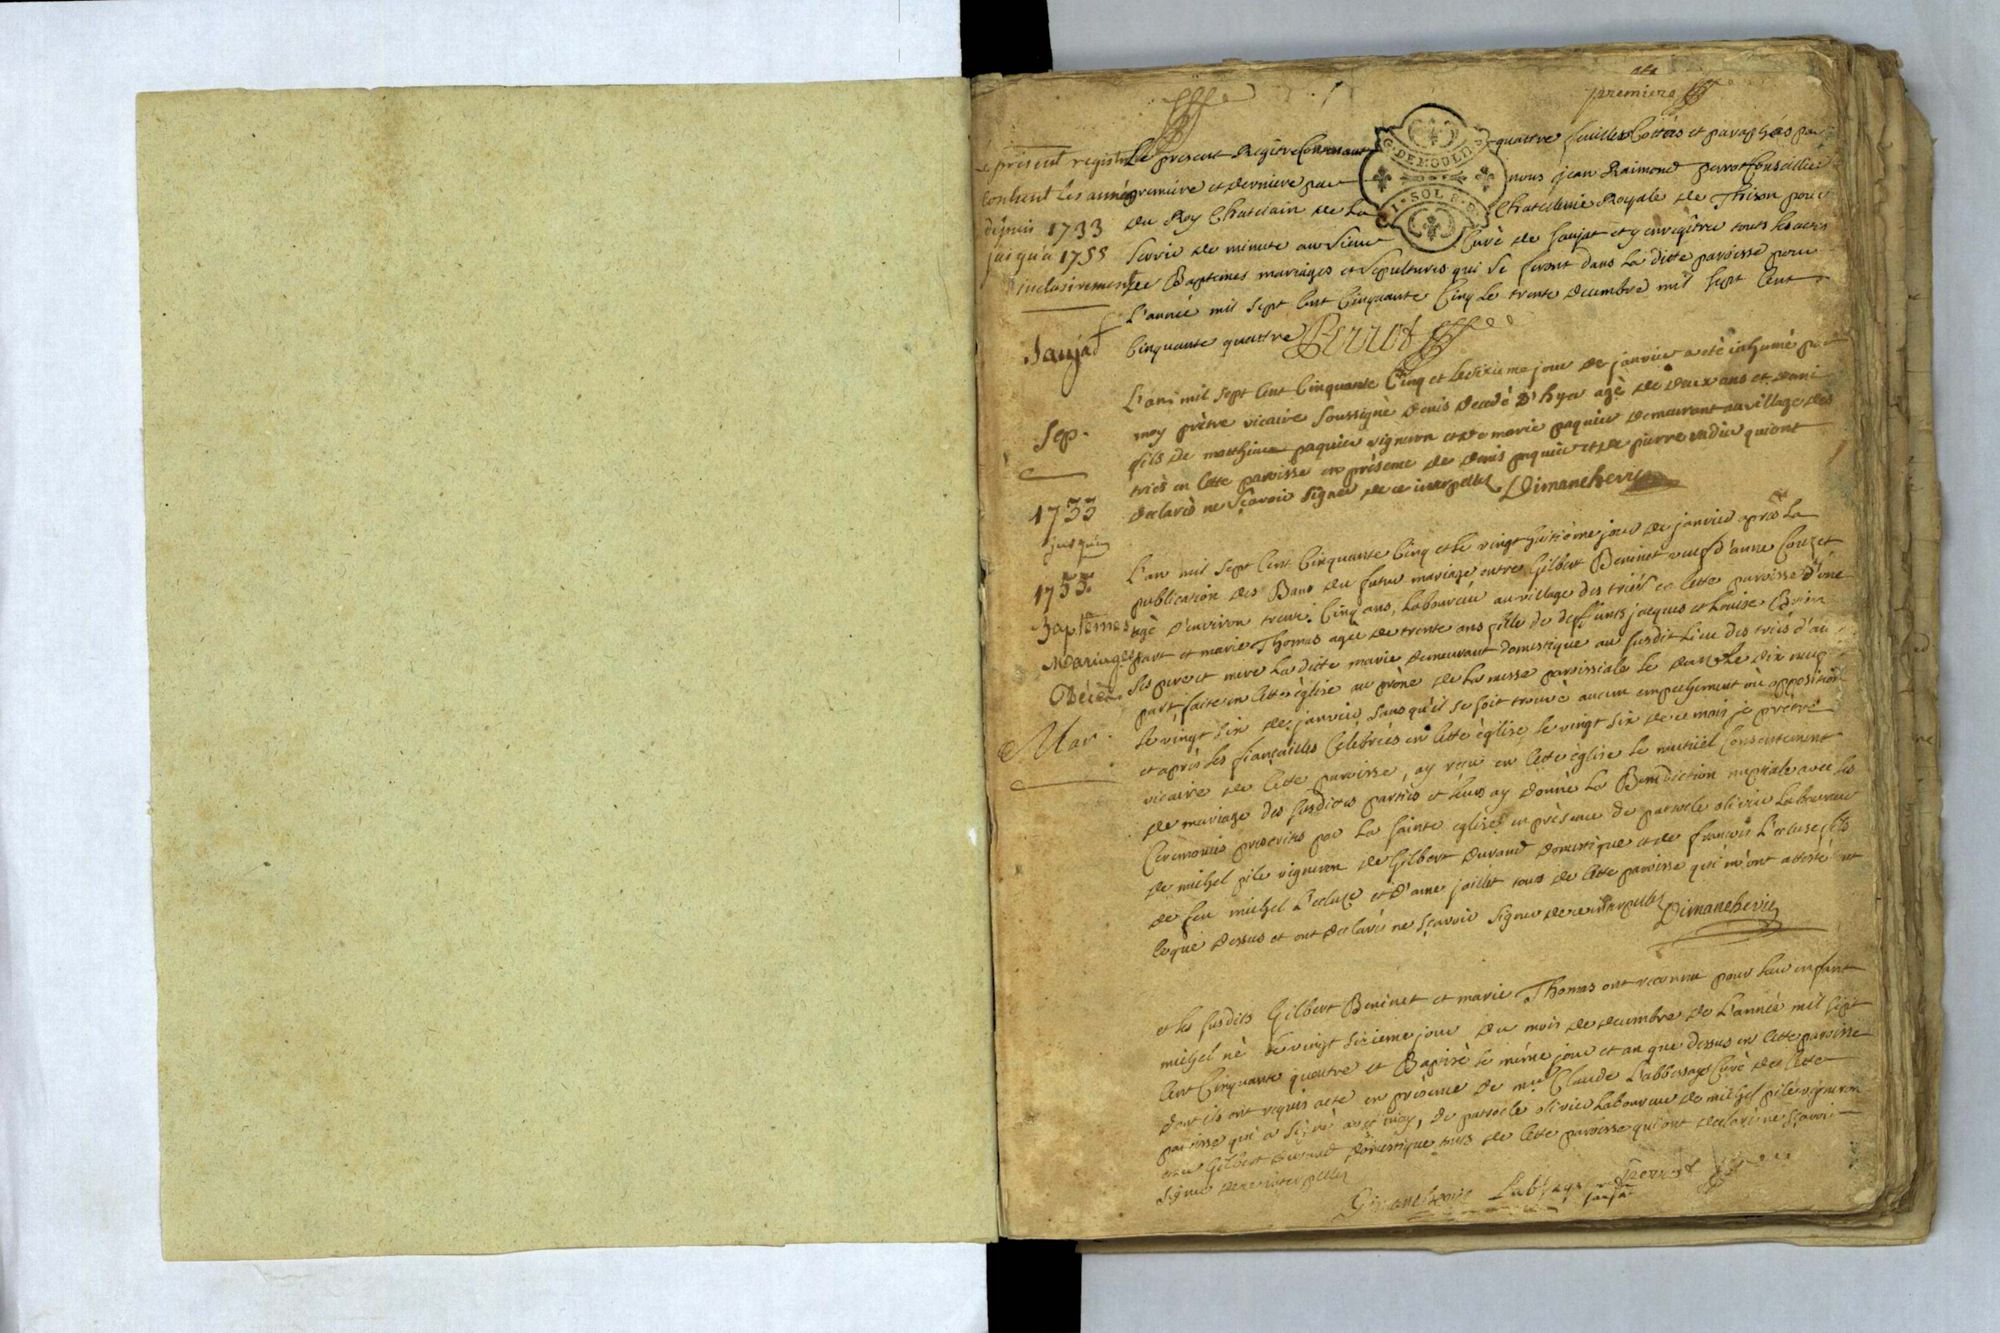 premiere
Le present registre
contient les années
depuis 1733
jusqu'a 1755
inclusivement
Saujat
Sep.
1733
jusquen
1755.
Baptêmes
Mariages
Décès
Mar.
G. DE MOULINS
1. SOL 8. D.
Le present Regitre Contenant quattre feuilles Cottés et paraphés par
premiere et derniere par nous jean Raimond perrot Conseiller
du Roy Chatelain de la Chatelenie Royale de Thison pour
servir de minute au sieur Curé de Saujat et y enregitrer touts les actes
de Baptemes mariages et sepultures qui se feront dans la ditte paroisse pour
L'année mil sept cent Cinquante Cinq le trente decembre mil sept cent
Cinquante quattre Perrot
L'an mil sept cent Cinquante Cinq et le dixieme jour de janvier a eté inhumé par
moy prêtre vicaire soussigné denis decedé d'hyer agé de deux ans et demi
fils de matthieu paquier vigneron et de marie paquier demeurant au village des
triés en cette paroisse en présence de denis paquier et de pierre qui ont
declaré ne sçavoir signer de ce interpellés Dimanchevie
L'an mil sept cent Cinquante Cinq et le vingt huitième jour de janvier après la
publication des Bans du futur mariage entre Gilbert Beninet veuf d'anne Couzet
agé d'environ trente Cinq ans, laboureur au village des triés en cette paroisse d'une
part et marie Thomas agée de trente ans fille de deffunts jacques et Louise
ses pere et mere la ditte marie demeurant domestique au susdit lieu des triés d'au
part, faite en cette église au prône de la messe paroissiale le le dix neuf
le vingt six de janvier sans qu'il se soit trouvé aucun empechement ou opposition
et après les fiançailles Celebrées en cette église le vingt six de ce mois je prêtre
vicaire de cette paroisse, ay reçu en cette église le mutüel Consentement
de mariage des susdites parties et leur ay donné la Benediction nuptiale avec les
Ceremonies prescrites par la sainte église en présence de patrocle olivier laboureur
de michel pile vigneron de Gilbert durand domestique et de françois L'ecluse fils
de feu michel L'ecluse et d'anne jaillet tous de cette paroisse qui m'ont attesté
ce que dessus et ont declaré ne sçavoir signer de ce interpellés Dimanchevie
et les susdits Gilbert Beninet et marie Thomas ont reconnu pour leur enfant
michel né le vingt sixieme jour du mois de decembre de L'année mil sept
cent Cinquante quattre et Baptisé le même jour et an que dessus en cette paroisse
dont ils ont requis acte en présence de mre Claude Labbessaye Curé de cette
paroisse qui a signé avec moy, de patrocle olivier laboureur de michel pile vigneron
et de Gilbert durand domestique tous de cette paroisse qui ont declaré ne sçavoir
signer de ce interpellés
Dimanchevie Perrot